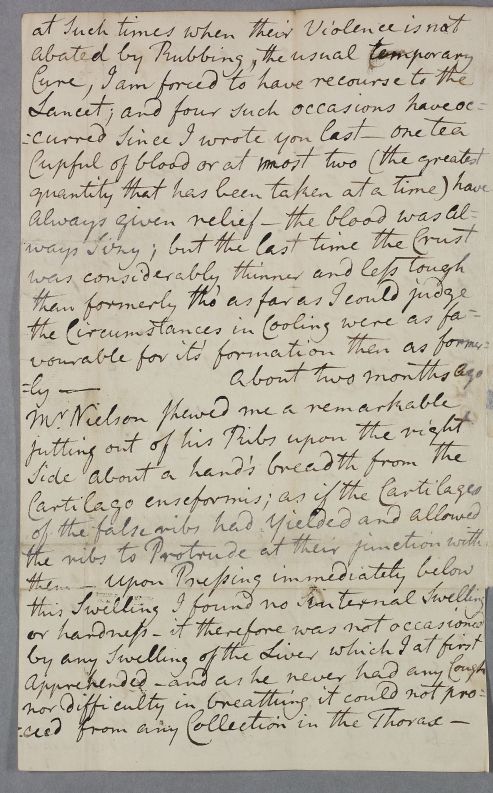 at Such times when their Violence is not
abated by Rubbing, the usual temporary
Cure, I am forced to have recourse to the
Lancet; and four such occasions have oc=
=curred Since I wrote you last – one tea
Cupful of blood or at most two (the greatest
quantity that has been taken at a time) have
always given relief – the blood was al=
ways Sizy; but the last time the Crust
was considerably thinner and less tough
than formerly tho' as far as I could judge
the Circumstances in Cooling were as fa=
vourable for it's formation then as former=
=ly — About two months ago
Mr. Nielson shewed me a remarkable
jutting out of his Ribs upon the right
Side about a hand's breadth from the
Cartilago enseformis; as if the Cartilages
of the false ribs had Yielded and allowed
the ribs to Protrude at their junction with
them – Upon Pressing immediately below
this Swelling I found no Internal Swelling
or hardness – it therefore was not occasioned
by any Swelling of the Liver which I at first
apprehended – and as he never had any Cough
nor difficulty in breathing it could not pro=
=ceed from any Collection in the Thorax –